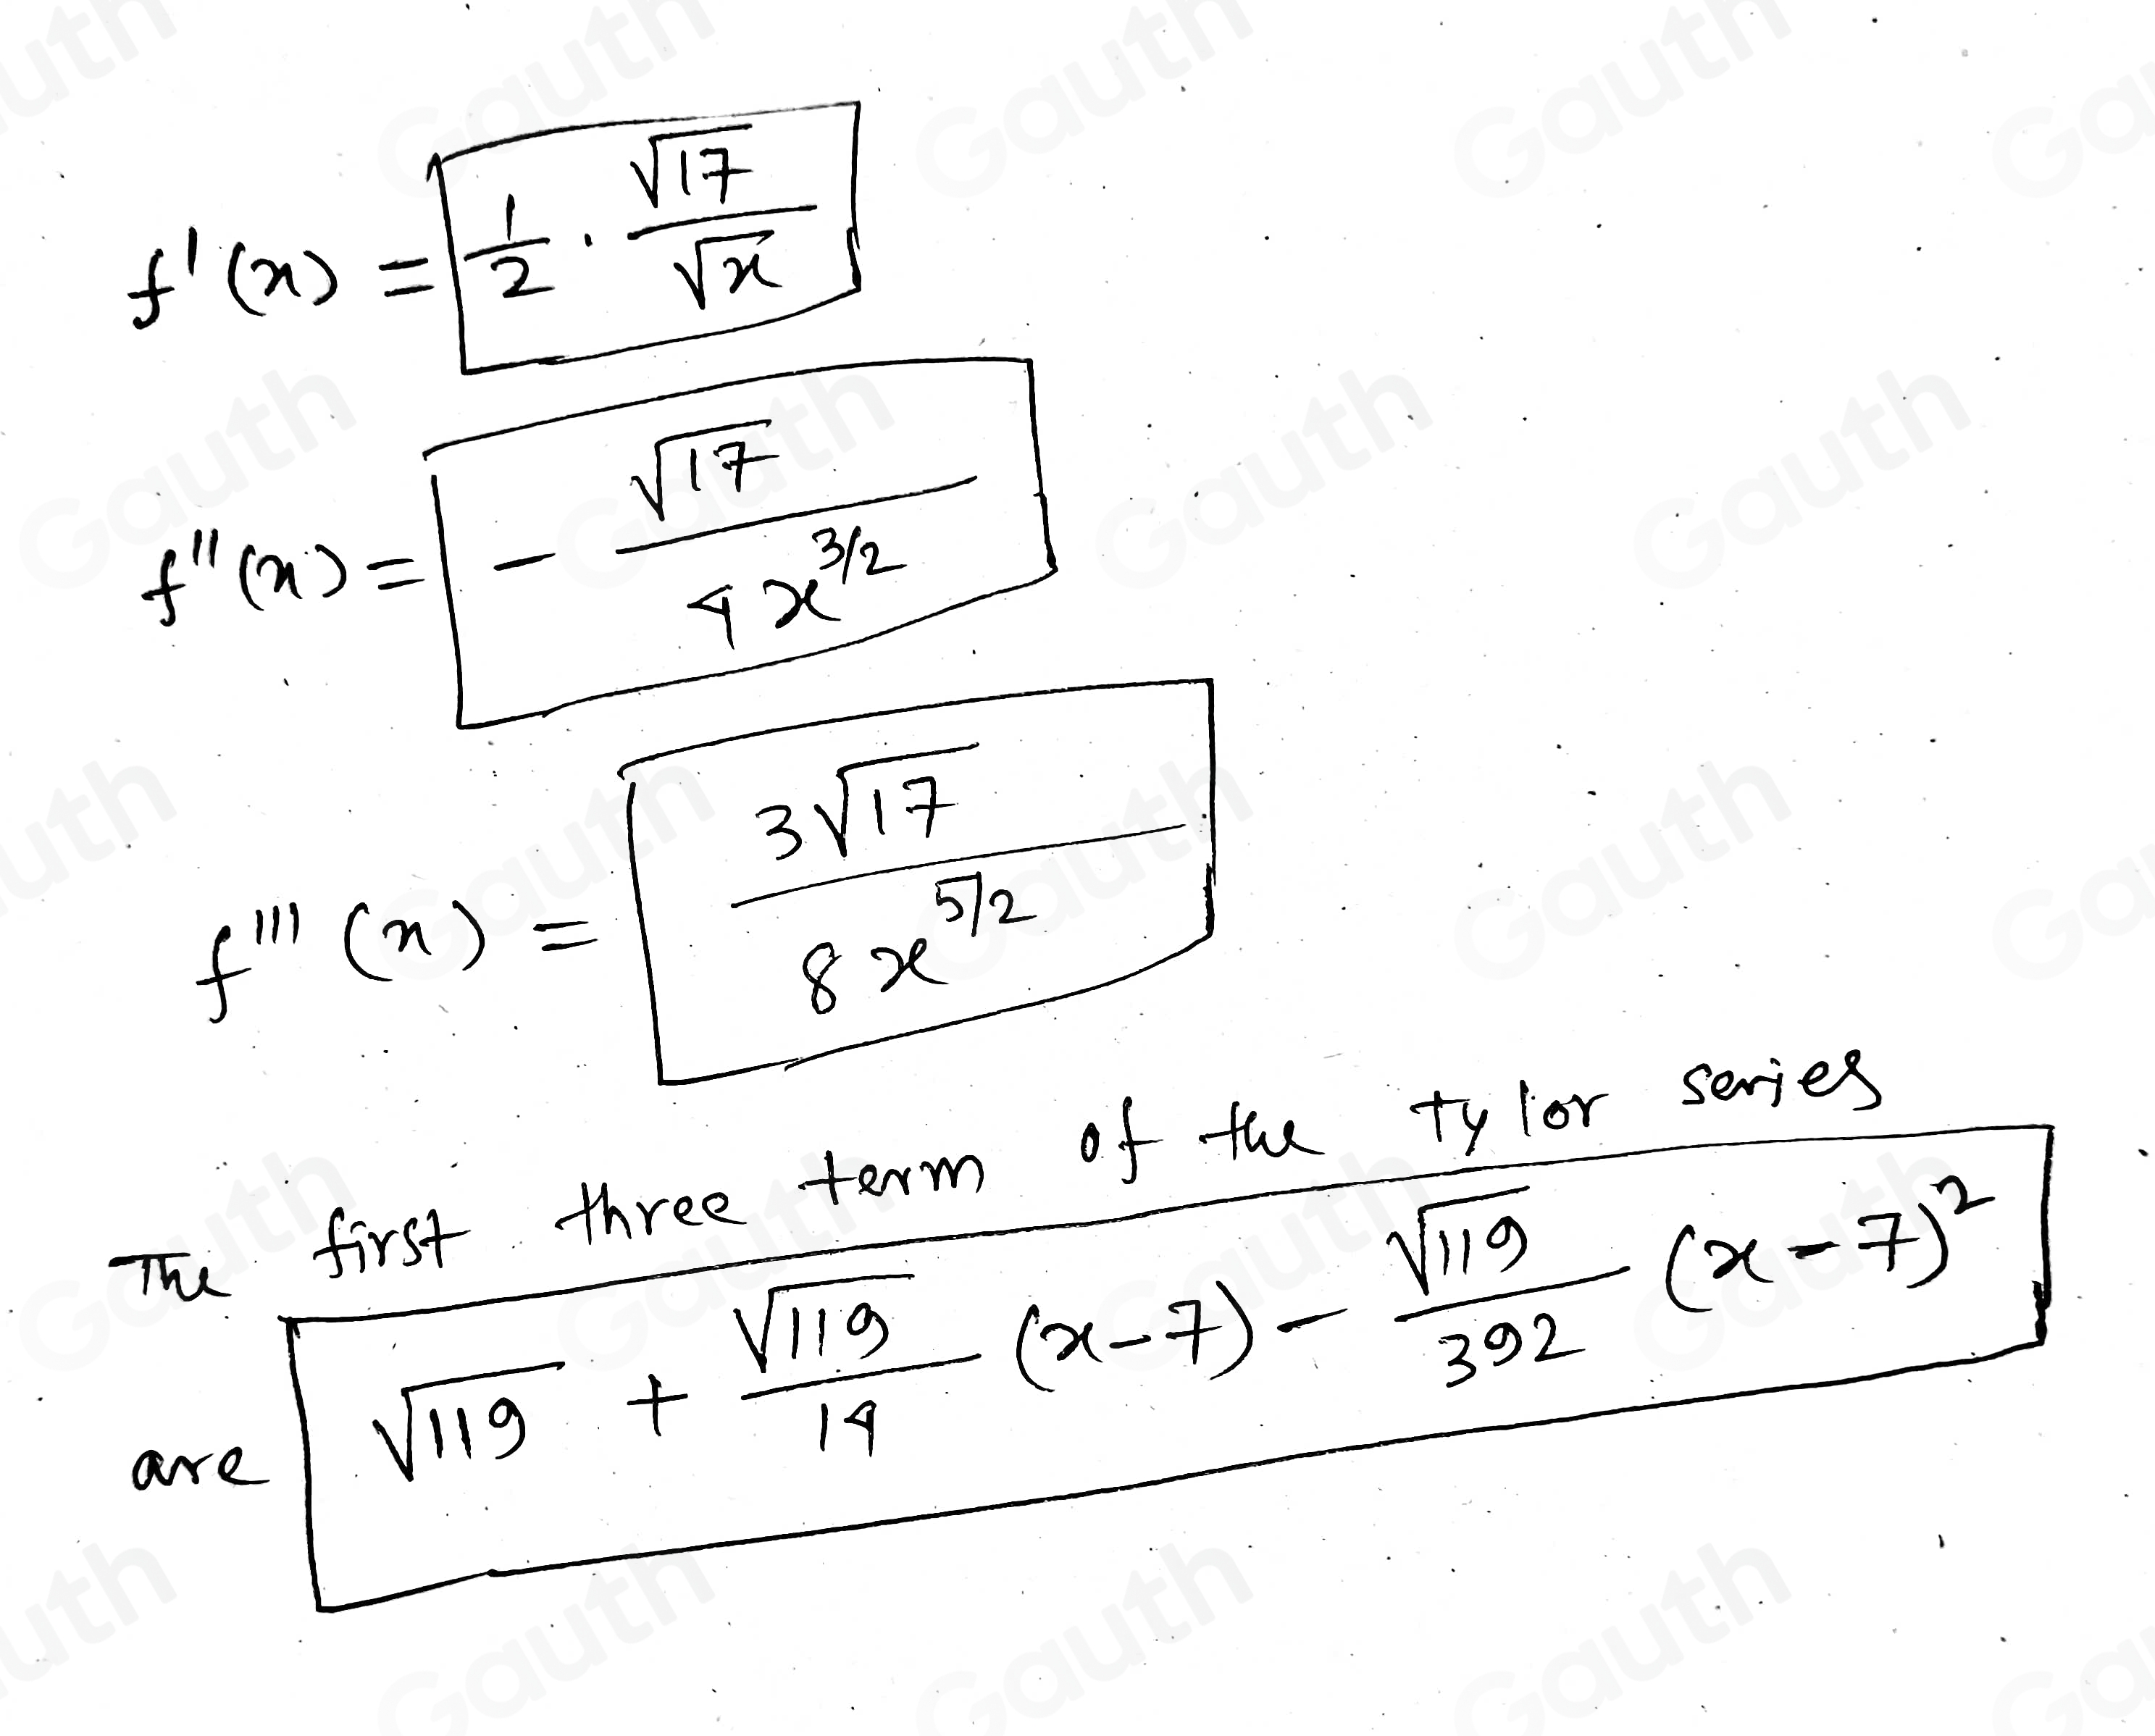 f'(x) = 1/2 · √17/√x
f''(x) = - √17/4x^3/2
f'''(x) = 3√17/8x^5/2
The first three term of the Tylor series
are √119 + √119/14 (x-7) - √119/392 (x-7)^2